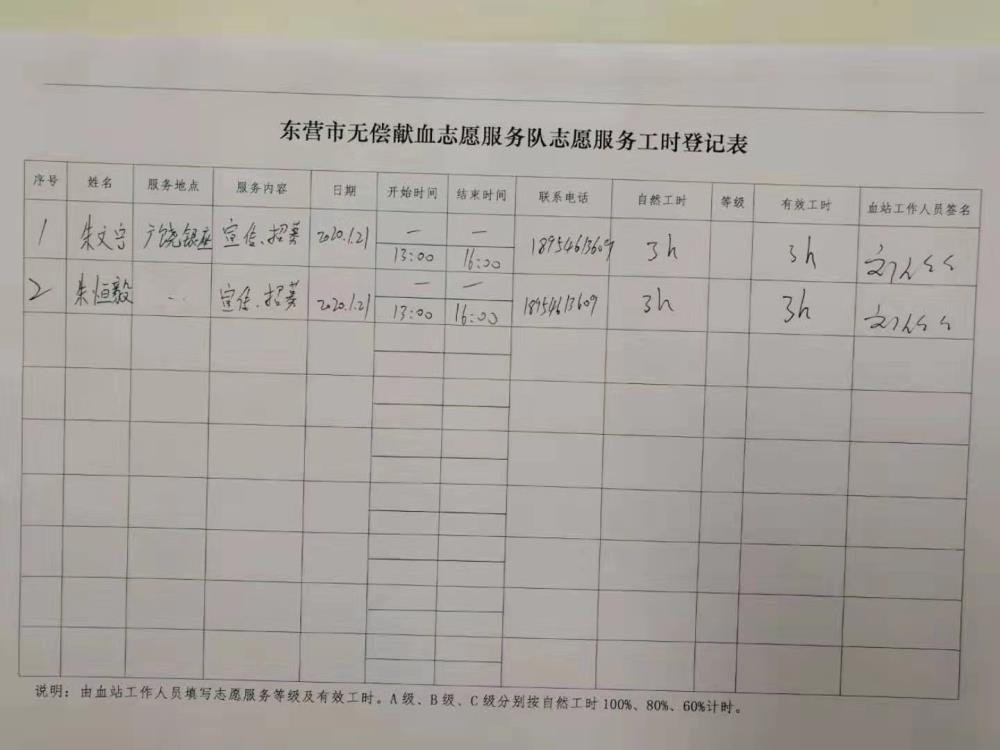 东营市无偿献血志愿服务队志愿服务工时登记表
序号 姓名 服务地点 服务内容 日期 开始时间 结束时间 联系电话 自然工时 等级 有效工时 血站工作人员签名
1 朱文宇 广饶银座 宣传、招募 2020.1.21 — — 18954613609 3h 3h
13:00 16:00
2 朱恒毅 .. 宣传、招募 2020.1.21 — — 18954613609 3h 3h
13:00 16:00
说明：由血站工作人员填写志愿服务等级及有效工时。A级、B级、C级分别按自然工时100%、80%、60%计时。